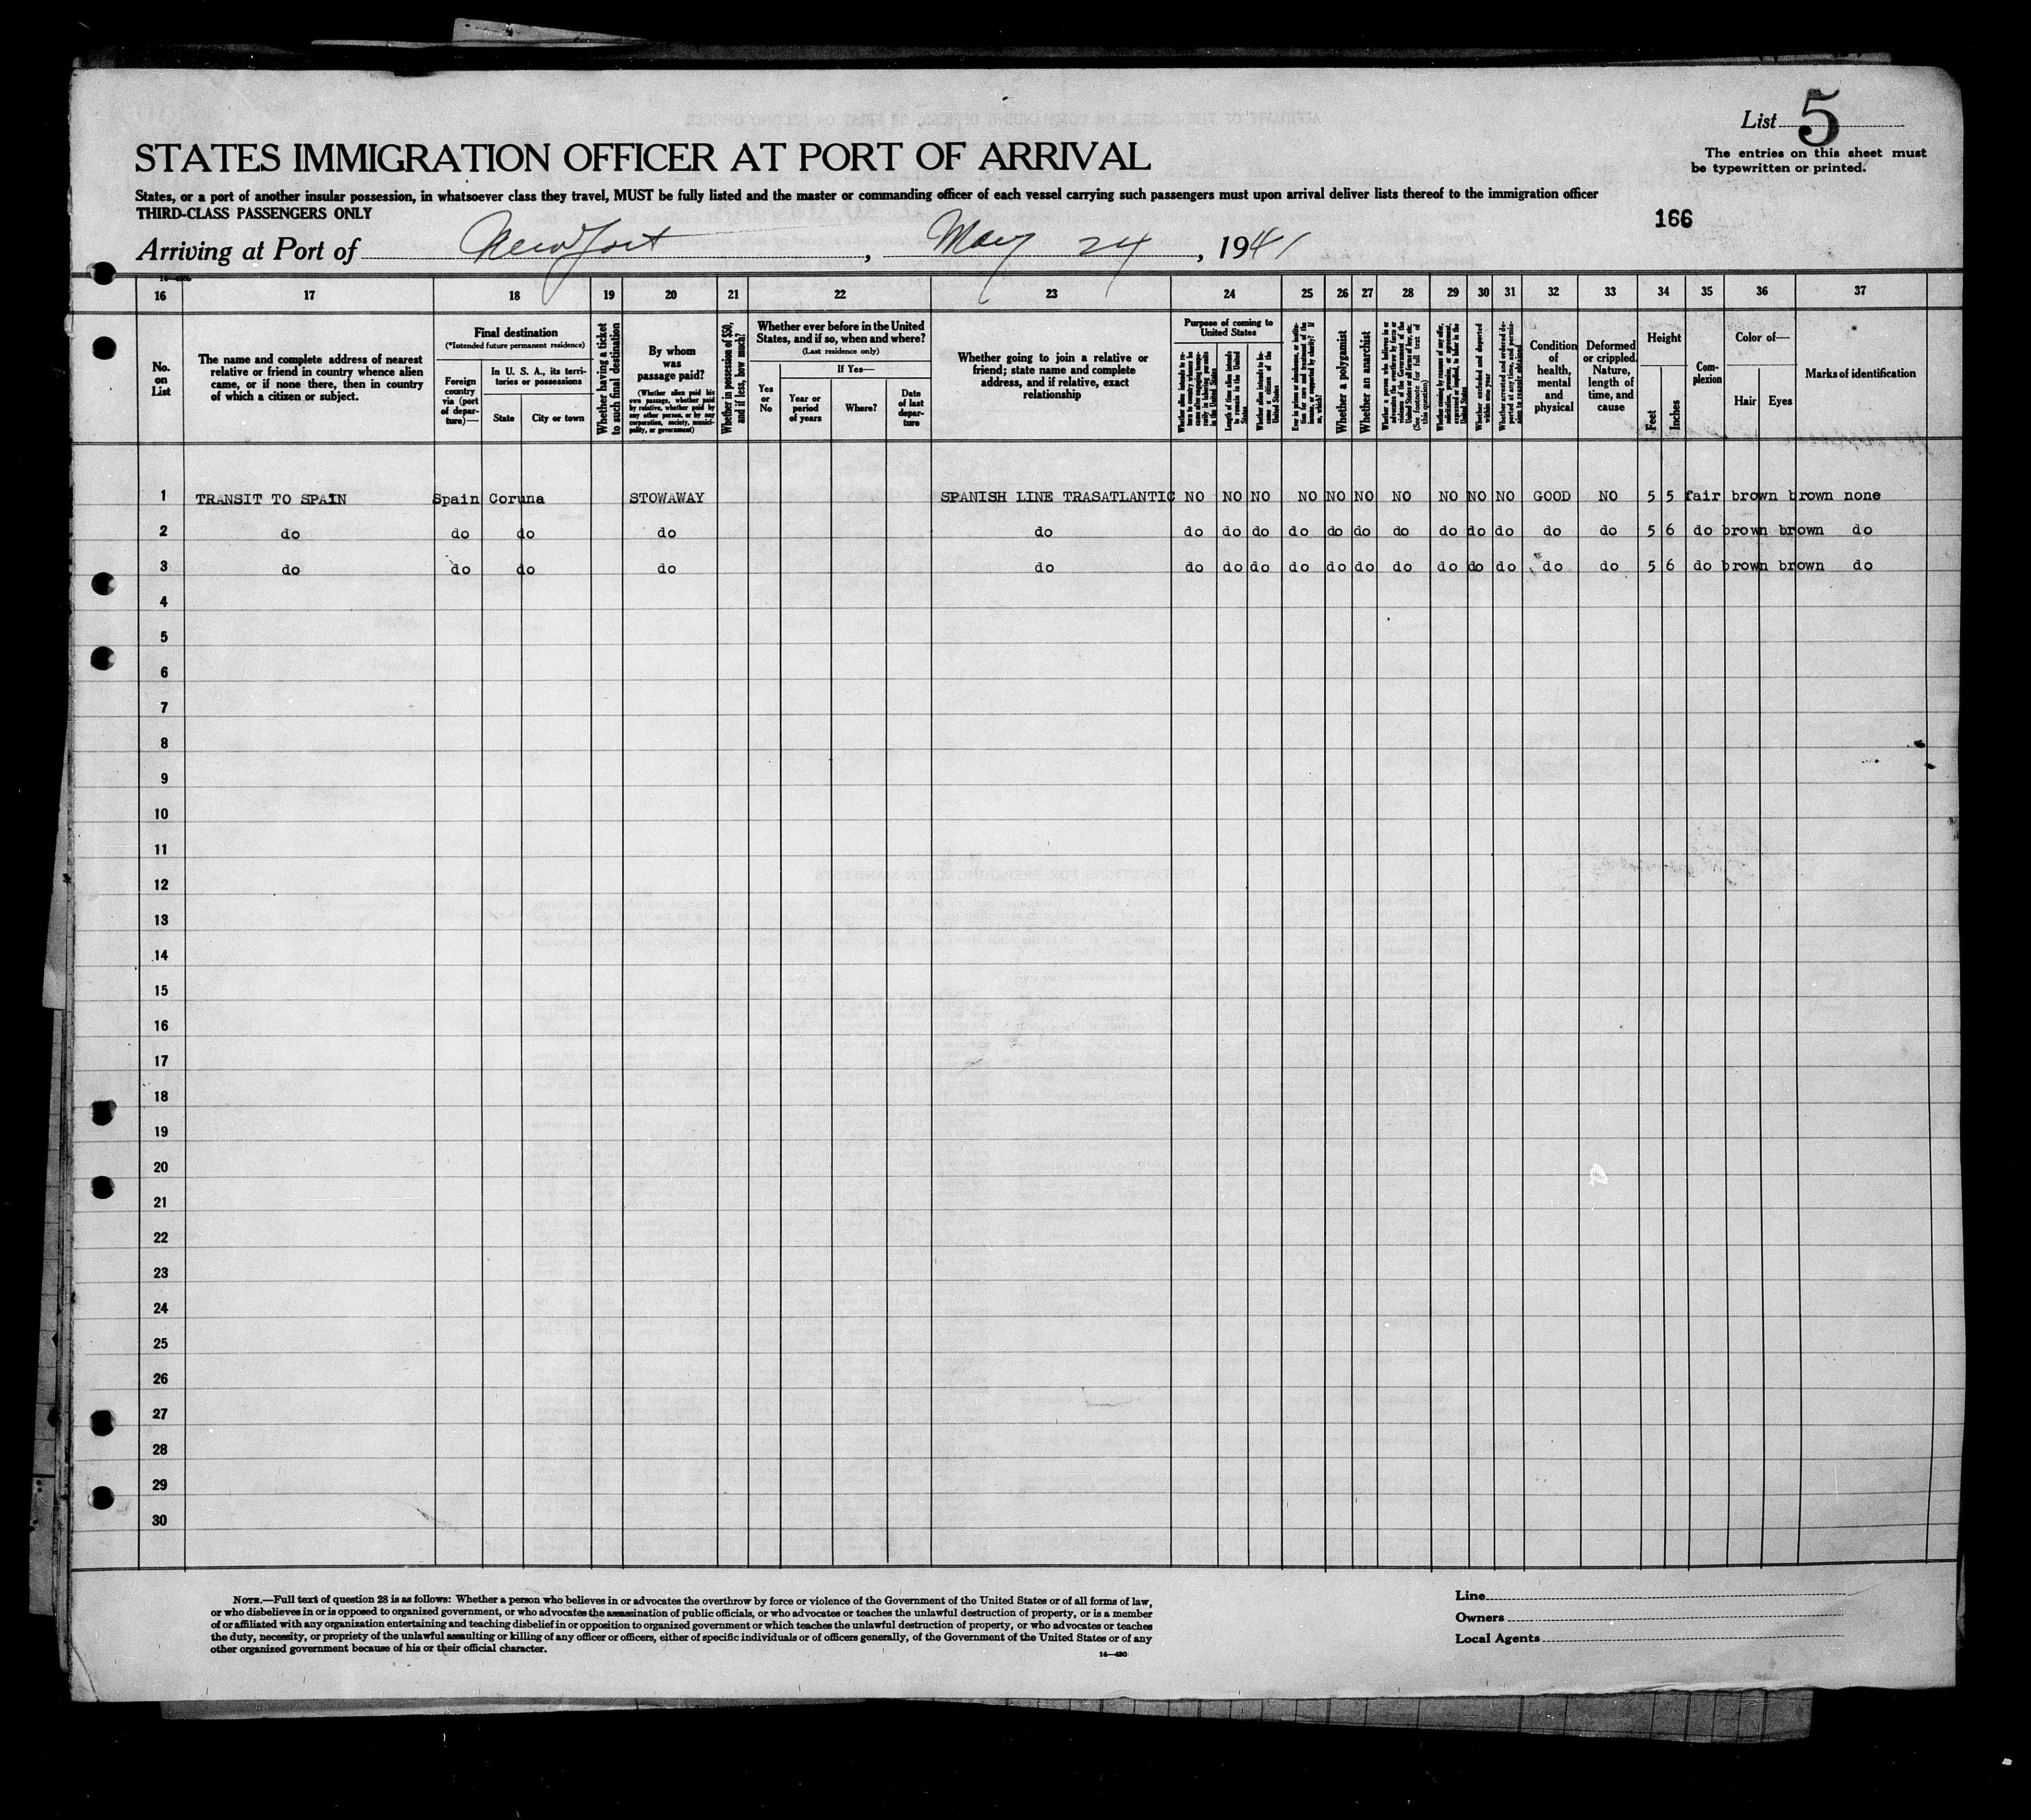 List 5
The entries on this sheet must
be typewritten or printed.
STATES IMMIGRATION OFFICER AT PORT OF ARRIVAL
States, or a port of another insular possession, in whatsoever class they travel, MUST be fully listed and the master or commanding officer of each vessel carrying such passengers must upon arrival deliver lists thereof to the immigration officer
THIRD-CLASS PASSENGERS ONLY
166
Arriving at Port of New York, May 24, 1941
16 17 18 19 20 21 22 23 24 25 26 27 28 29 30 31 32 33 34 35 36 37
No.
on
List
The name and complete address of nearest
relative or friend in country whence alien
came, or if none there, then in country
of which a citizen or subject.
Final destination
(*Intended future permanent residence)
Foreign
country
via (port
of depar-
ture)—
In U. S. A., its terri-
tories or possessions
State
City or town
Whether having a ticket
to such final destination
By whom
was
passage paid?
(Whether alien paid his
own passage, whether paid
by relative, whether paid by
any other person, or by any
corporation, society, munici-
pality, or government)
Whether in possession of $50,
and if less, how much?
Whether ever before in the United
States, and if so, when and where?
(Last residence only)
Yes
or
No
If Yes—
Year or
period
of years
Where?
Date
of last
depar-
ture
Whether going to join a relative or
friend; state name and complete
address, and if relative, exact
relationship
Purpose of coming to
United States
Length of time alien intends
to remain in the United
States
Whether alien intends to be-
come a citizen of the
United States
Whether a polygamist
Whether an anarchist
Whether excluded and deported
within one year
Condition
of
health,
mental
and
physical
Deformed
or crippled.
Nature,
length of
time, and
cause
Height
Feet
Inches
Com-
plexion
Color of—
Hair
Eyes
Marks of identification
1 TRANSIT TO SPAIN Spain Coruna STOWAWAY SPANISH LINE TRASATLANTIC NO NO NO NO NO NO NO NO NO NO GOOD NO 5 5 fair brown brown none
2 do do do do do do do do do do do do do do do do do 5 6 do brown brown do
3 do do do do do do do do do do do do do do do do do 5 6 do brown brown do
4
5
6
7
8
9
10
11
12
13
14
15
16
17
18
19
20
21
22
23
24
25
26
27
28
29
30
NOTE.—Full text of question 28 is as follows: Whether a person who believes in or advocates the overthrow by force or violence of the Government of the United States or of all forms of law,
or who disbelieves in or is opposed to organized government, or who advocates the assassination of public officials, or who advocates or teaches the unlawful destruction of property, or is a member
of or affiliated with any organization entertaining and teaching disbelief in or opposition to organized government or which teaches the unlawful destruction of property, or who advocates or teaches
the duty, necessity, or propriety of the unlawful assaulting or killing of any officer or officers, either of specific individuals or of officers generally, of the Government of the United States or of any
other organized government because of his or their official character.
14—430
Line
Owners
Local Agents